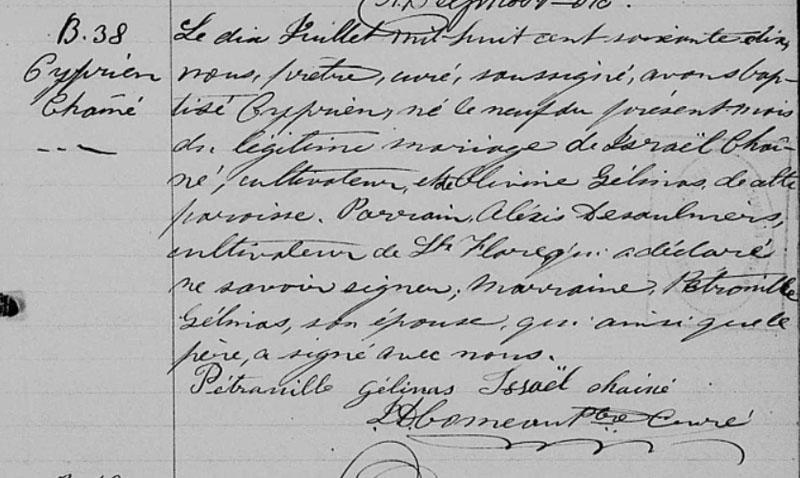 B. 38
Cyprien
Chaîné
Le dix Juillet mil-huit cent soixante dix,
nous, prêtre, curé, soussigné, avons bap-
tisé Cyprien, né le neuf du présent mois
du légitime mariage de Israël Chaî-
né, cultivateur, et de Olivine Gélinas, de cette
paroisse. Parrain, Alexis Desaulniers,
cultivateur de Ste Flore qui a déclaré
ne savoir signer; Marraine, Pétronille
Gélinas, son épouse, qui ainsi que le
père, a signé avec nous.
Pétronille Gélinas Israël Chainé
Ptre Curé